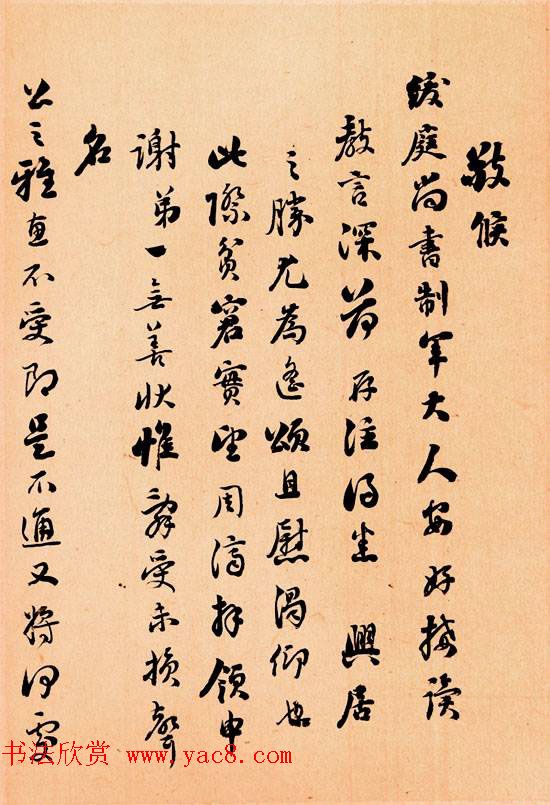 敬候
庭尚書制軍大人安好接讀
教言深荷存注得悉 興居
之勝尤為遙頌且慰渴仰也
此際貧窘實望周濟拜領申
謝弟一無善狀惟辭受未損聲
名
公之雅直不受即是不通又將何處
书法欣赏 www.yac8.com